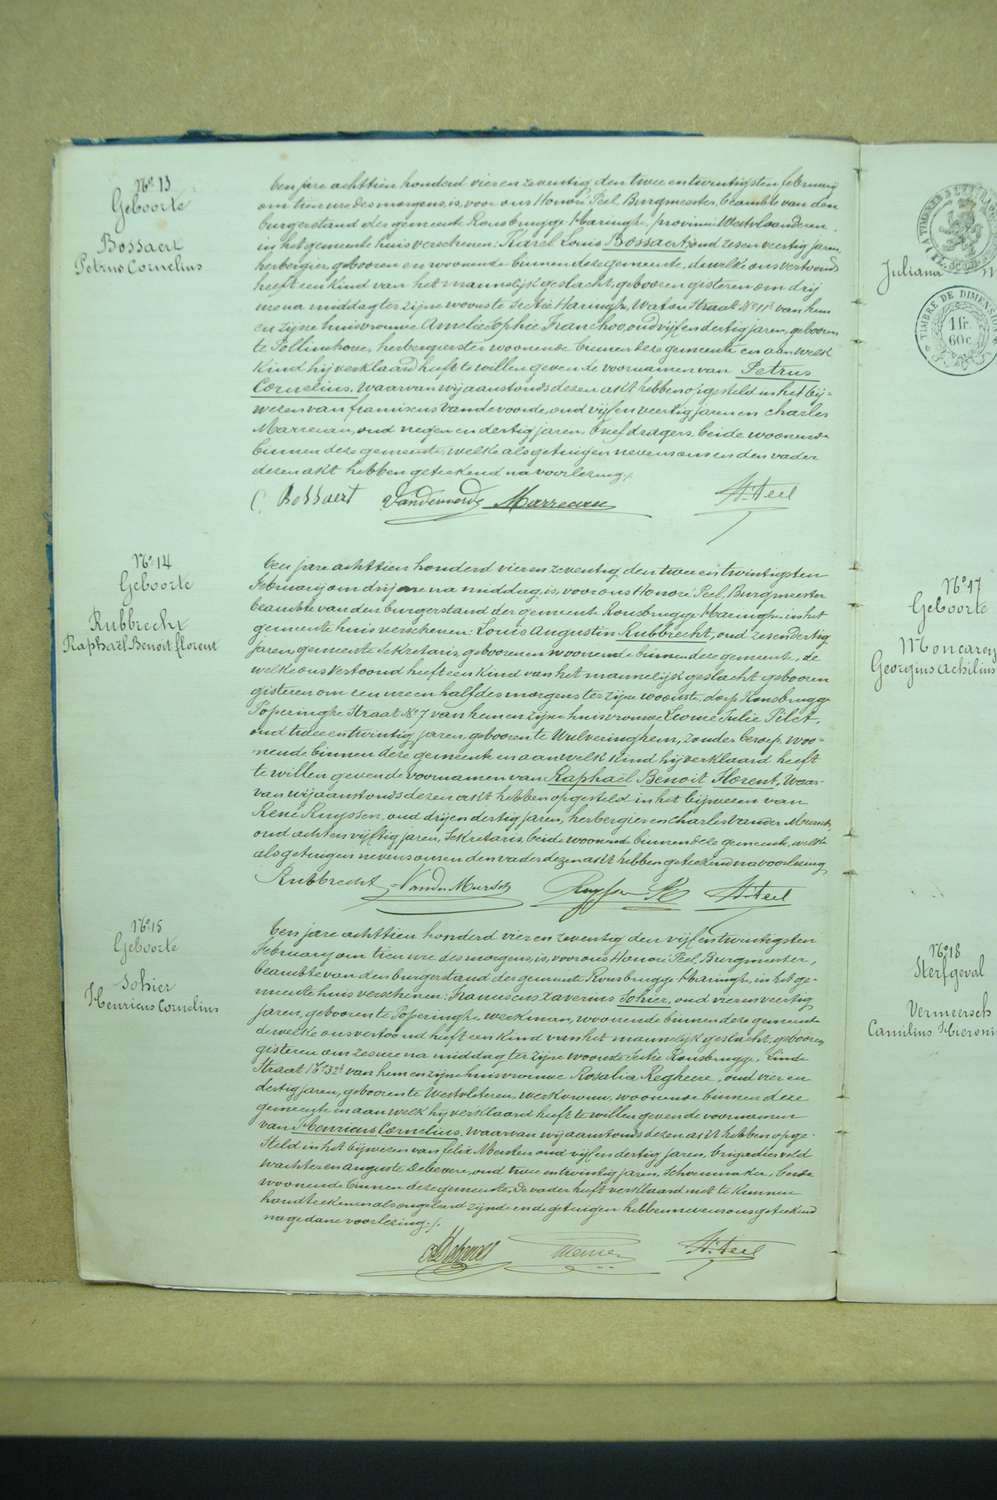 N° 13
Geboorte
Bossaert
Petrus Cornelius
ben jare achttien honderd vier en zeventig den twee en twintigsten februarij
om tien ure des morgens, is, voor ons Honoré Peel, Burgmeester, beambte van den
burgerstand der gemeente Rousbrugge-Haringhe, provincie Westvlaanderen,
in het gemeente huis verschenen: Karel Louis Bossaert, oud zes en veertig jaren,
herbergier, gebooren en woonende binnen deze gemeente, dewelke ons vertoond
heeft een kind van het mannelijk geslacht, gebooren gisteren om drij
ure na middag ter zijne woonste Sectie Haringhe, Watou Straat N° 11 van hem
en zijne huisvrouwe Amelie Sophie Franchoo, oud vijf en dertig jaren, gebooren
te Pollinchove, herbergierster woonende binnen deze gemeente en aan welk
kind hij verklaard heeft te willen geven de voornamen van Petrus
Cornelius, waarvan wij aanstonds dezen akt hebben opgesteld in het bij-
wezen van franciscus Vandevoorde, oud vijf en veertig jaren en charles
Marreeuw, oud negen en dertig jaren, briefdragers, beide woonende
binnen deze gemeente, welke als getuigen nevens ons en den vader
dezen akt hebben geteekend na voorlezing
C. Bossaert Vandevoorde Marreeuw H. Peel
N° 14
Geboorte
Rubbrecht
Raphaël Benoit florent
ben jare achttien honderd vier en zeventig den twee en twintigsten
februarij om drij ure na middag, is, voor ons Honoré Peel, Burgmeester
beambte van den burgerstand der gemeente Rousbrugge-Haringhe in het
gemeente huis verschenen: Louis Augustin Rubbrecht, oud zes en dertig
jaren, gemeente Sekretaris, gebooren en woonende binnen deze gemeente, de
welke ons vertoond heeft een kind van het mannelijk geslacht gebooren
gisteren om een ure en half des morgens ter zijne woonste, dorp Rousbrugge
Poperinghe Straat N° 7 van hem en zijne huisvrouwe Leonie Julie Pilet,
oud twee en twintig jaren, gebooren te Wulveringhem, zonder beroep, woo-
nende binnen deze gemeente en aan welk kind hij verklaard heeft
te willen geven de voornamen van Raphaël Benoit Florent, waar-
van wij aanstonds dezen akt hebben opgesteld in het bijwezen van
René Ruyssen, oud drij en dertig jaren, herbergier en Charles Vander Meersch,
oud acht en vijftig jaren, Sekretaris, beide woonende binnen deze gemeente, welke
als getuigen nevens ons en den vader dezen akt hebben geteekend na voorlezing
Rubbrecht Vander Mersch Ruyssen H. Peel
N° 15
Geboorte
Sohier
Henricus Cornelius
ben jare achttien honderd vier en zeventig den vijf en twintigsten
februarij om tien ure des morgens, is, voor ons Honoré Peel, Burgmeester,
beambte van den burgerstand der gemeente Rousbrugge-Haringhe, in het ge-
meente huis verschenen: Franciscus Xaverius Sohier, oud vier en veertig
jaren, gebooren te Poperinghe, werkman, woonende binnen deze gemeente
dewelke ons vertoond heeft een kind van het mannelijk geslacht, gebooren
gisteren om zes ure na middag ter zijne woonste Sectie Rousbrugge, Linde
Straat N° 32 van hem en zijne huisvrouwe Rosalia Reghere, oud vier en
dertig jaren, gebooren te Westvleteren, werkvrouw, woonende binnen deze
gemeente en aan welk hij verklaard heeft te willen geven de voornamen
van Henricus Cornelius, waarvan wij aanstonds dezen akt hebben opge-
steld in het bijwezen van felix Mersten oud vijf en dertig jaren, brigadier veld
wachter en auguste Debevere, oud twee en twintig jaren, Schoenmaker, beide
woonende binnen deze gemeente, De vader heeft verklaard niet te kennen
handteekenen als ongeleerd zijnde en de getuigen hebben nevens ons geteekend
na gedane voorlezing
H. Peel
Juliana
TIMBRE DE DIMENSION
1 fr.
60 c.
N° 17
Geboorte
Moncarey
Georgius Achilius
N° 18
Sterfgeval
Vermeersch
Camilius